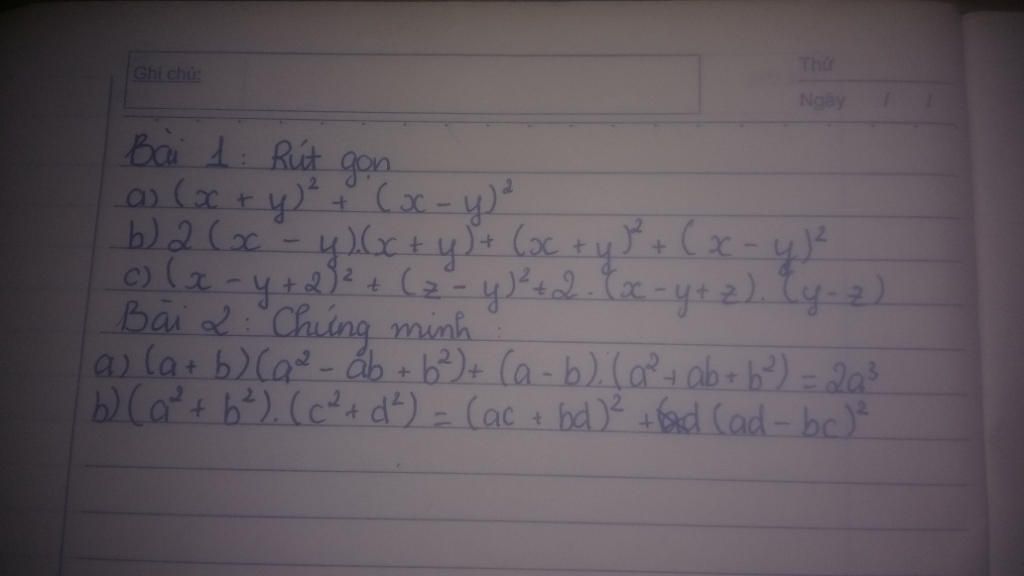 Ghi chú:
Thứ
Ngày / /
Bài 1: Rút gọn
a) (x + y)² + (x - y)²
b) 2(x - y).(x + y) + (x + y)² + (x - y)²
c) (x - y + 2)² + (z - y)² + 2.(x - y + z).(y - z)
Bài 2: Chứng minh:
a) (a + b)(a² - ab + b²) + (a - b).(a² + ab + b²) = 2a³
b) (a² + b²).(c² + d²) = (ac + bd)² + (ad - bc)²